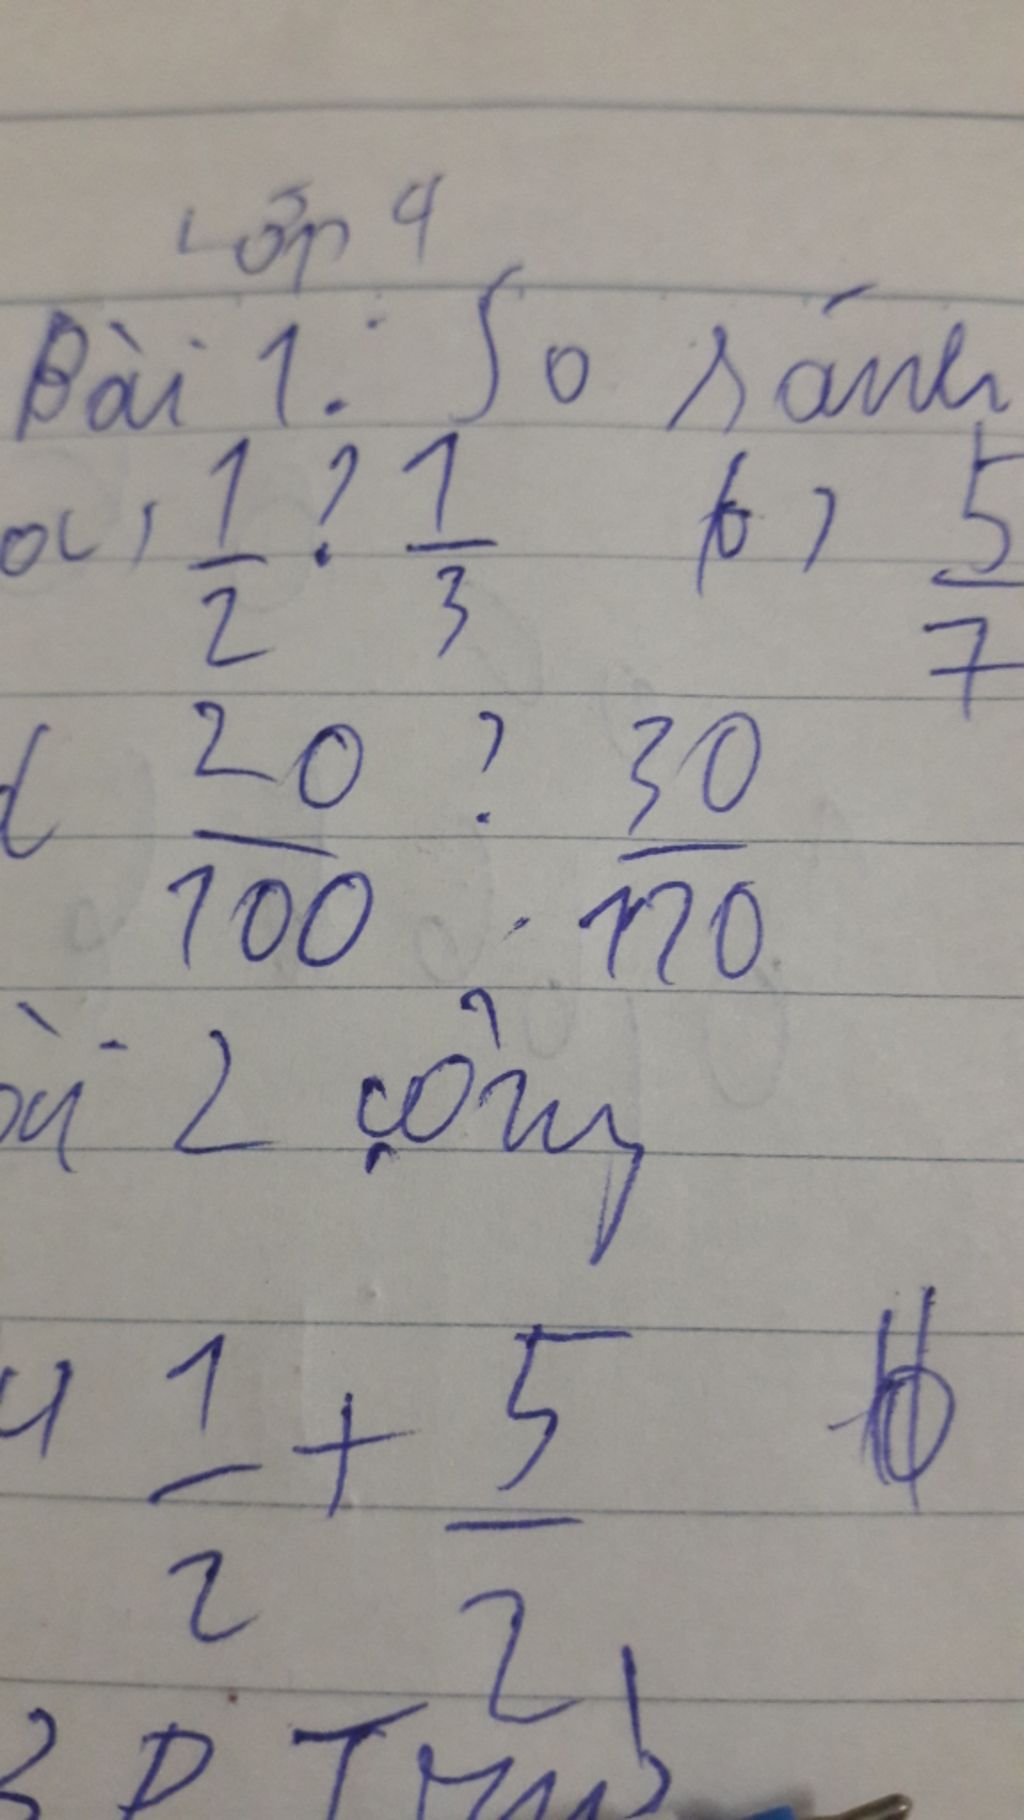 Lớp 4
Bài 1: So sánh
a, 1/2 ? 1/3 b, 5/7
d 20/100 ? 30/170
bài 2 cộng
a 1/2 + 5/2 b
3 P Trừ